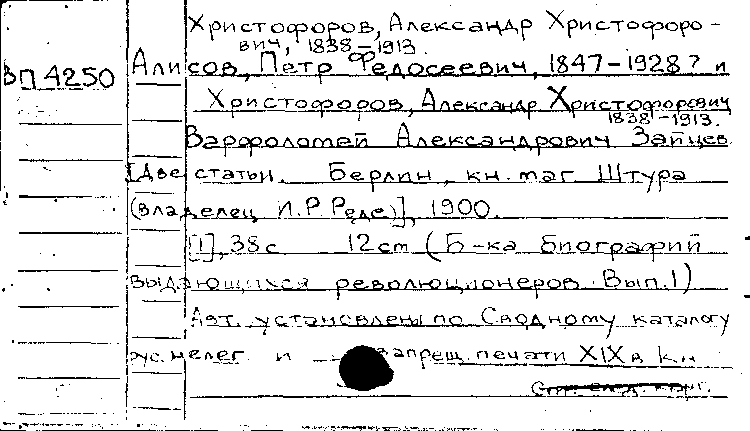 Христофоров, Александр Христофоро-
вич, 1838-1913.
ВП4250
Алисов, Петр Федосеевич, 1847-1928? и
Христофоров, Александр Христофорович
1838-1913.
Варфоломей Александрович Зайцев
[Две статьи. Берлин, кн. маг. Штура
(владелец И.Р.Реде)], 1900.
[1], 38 с 12 cm (Б-ка биографий
выдающихся революционеров. Вып.1)
Авт. установлены по Сводному каталогу
рус. нелег. и запрещ. печати XIX в Кн